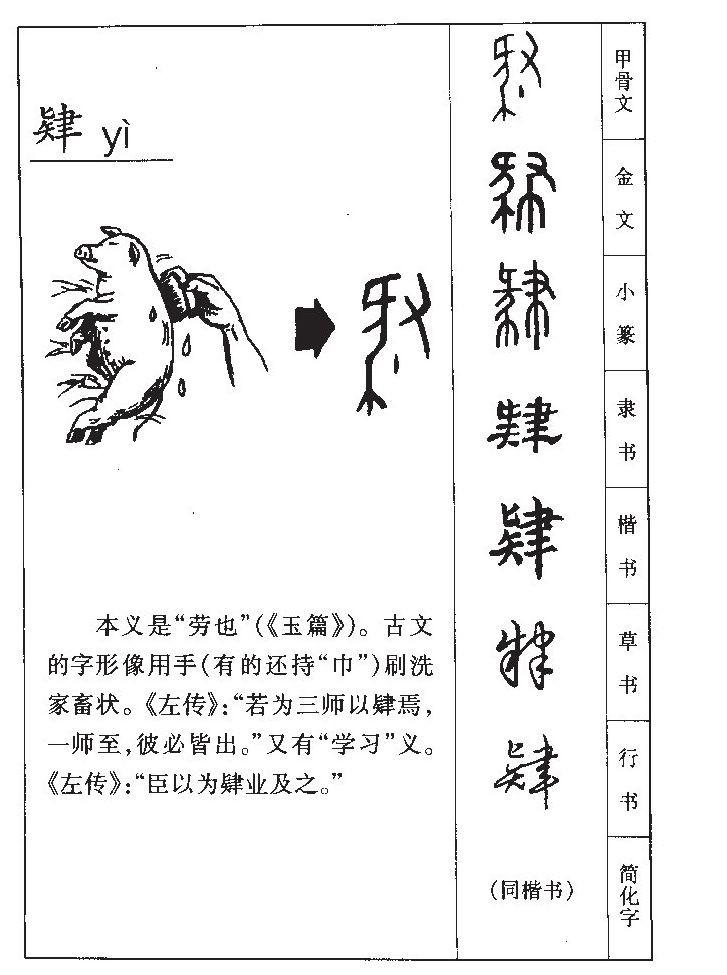 肄 yì
本义是“劳也”(《玉篇》)。古文
的字形像用手(有的还持“巾”)刷洗
家畜状。《左传》:“若为三师以肄焉,
一师至,彼必皆出。”又有“学习”义。
《左传》:“臣以为肄业及之。”
甲骨文
金文
小篆
肄
隶书
肄
楷书
肄
草书
肄
行书
肄
(同楷书)
简化字